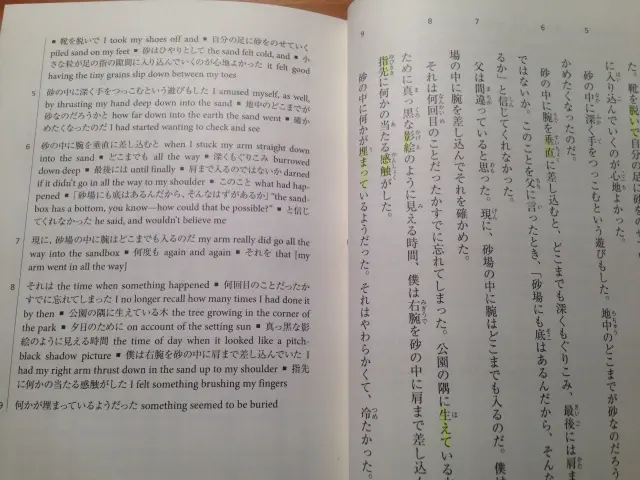 ■ 靴を脱いで I took my shoes off and ■ 自分の足に砂をのせていく
piled sand on my feet ■ 砂はひやりとして the sand felt cold, and ■ 小
さな粒が足の指の隙間に入り込んでいくのが心地よかった it felt good
having the tiny grains slip down between my toes
5 砂の中に深く手をつっこむという遊びもした I amused myself, as well,
by thrusting my hand deep down into the sand ■ 地中のどこまでが
砂なのだろうかと how far down into the earth the sand went ■ 確か
めたくなったのだ I had started wanting to check and see
6 砂の中に腕を垂直に差し込むと when I stuck my arm straight down
into the sand ■ どこまでも all the way ■ 深くもぐりこみ burrowed
down deep ■ 最後には until finally ■ 肩まで入るのではないか darned
if it didn't go in all the way to my shoulder ■ このこと what had hap-
pened ■ 「砂場にも底はあるんだから、そんなはずがあるか」 "the sand-
box has a bottom, you know—how could that be possible?" ■ と信じ
てくれなかった he said, and wouldn't believe me
7 現に、砂場の中に腕はどこまでも入るのだ my arm really did go all the
way into the sandbox ■ 何度も again and again ■ それを that [my
arm went in all the way]
8 それは the time when something happened ■ 何回目のことだったか
すでに忘れてしまった I no longer recall how many times I had done it
by then ■ 公園の隅に生えている木 the tree growing in the corner of
the park ■ 夕日のために on account of the setting sun ■ 真っ黒な影
絵のように見える時間 the time of day when it looked like a pitch-
black shadow picture ■ 僕は右腕を砂の中に肩まで差し込んでいた I
had my right arm thrust down in the sand up to my shoulder ■ 指先
に何かの当たる感触がした I felt something brushing my fingers
9 何かが埋まっているようだった something seemed to be buried
た。靴を脱いで自分の足に砂をの
に入り込んでいくのが心地よかった。
5 砂の中に深く手をつっこむという遊びもした。地中のどこまでが砂なのだろう
かめたくなったのだ。
6 砂の中に腕を垂直に差し込むと、どこまでも深くもぐりこみ、最後には肩ま
ではないか。このことを父に言ったとき、「砂場にも底はあるんだから、そんな
るか」と信じてくれなかった。
7 父は間違っていると思った。現に、砂場の中に腕はどこまでも入るのだ。僕
場の中に腕を差し込んでそれを確かめた。
8 それは何回目のことだったかすでに忘れてしまった。公園の隅に生えている
ために真っ黒な影絵のように見える時間、僕は右腕を砂の中に肩まで差し込ん
指先に何かの当たる感触がした。
9 砂の中に何かが埋まっているようだった。それはやわらかくて、冷たかった。